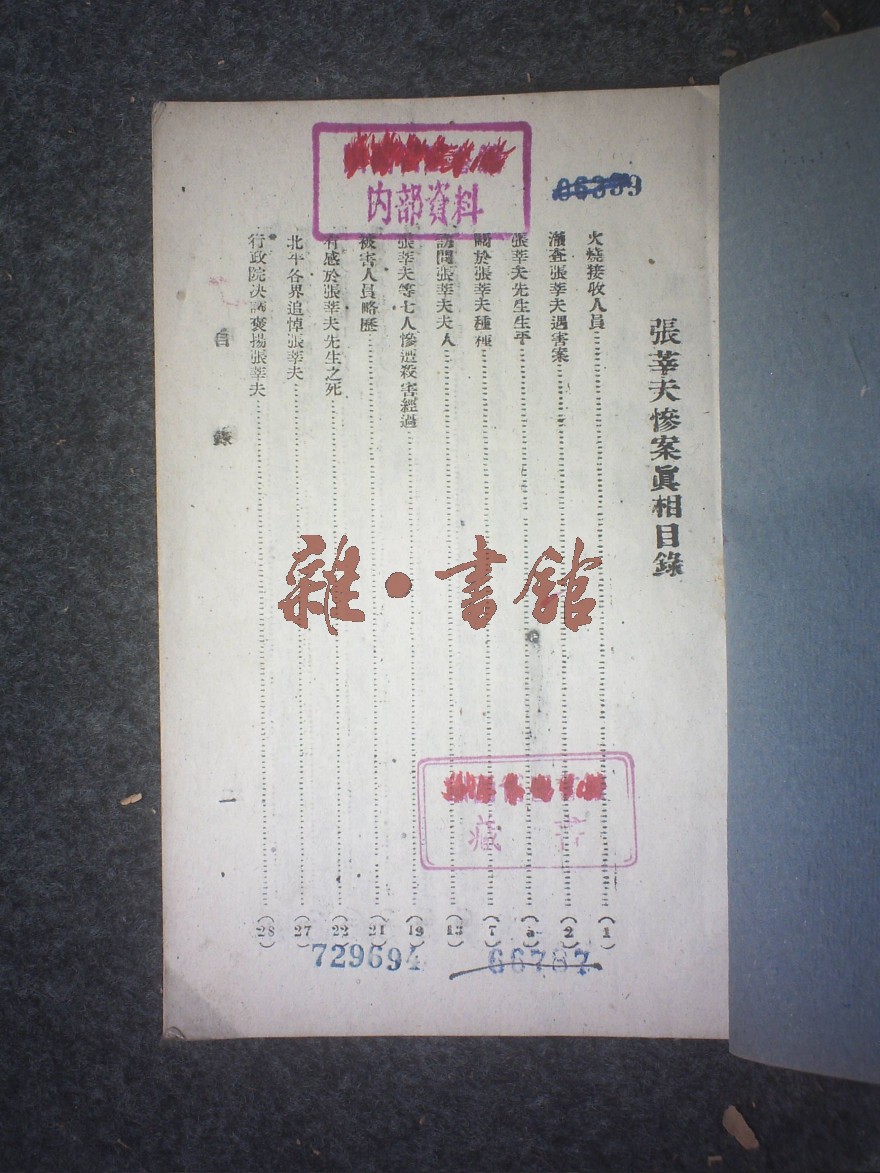 張莘夫慘案眞相目錄
火燒接收人員(1)
張莘夫遇害案(2)
張莘夫先生生平
於張莘夫種種(7)
訪問張莘夫夫人(13)
張莘夫等七人慘遭殺害經過(19)
被害人員略歷(21)
有感於張莘夫先生之死(22)
北平各界追悼張莘夫(27)
行政院決議褒揚張莘夫(28)
目錄
内部資料
雜·書館
藏書
729694
66787